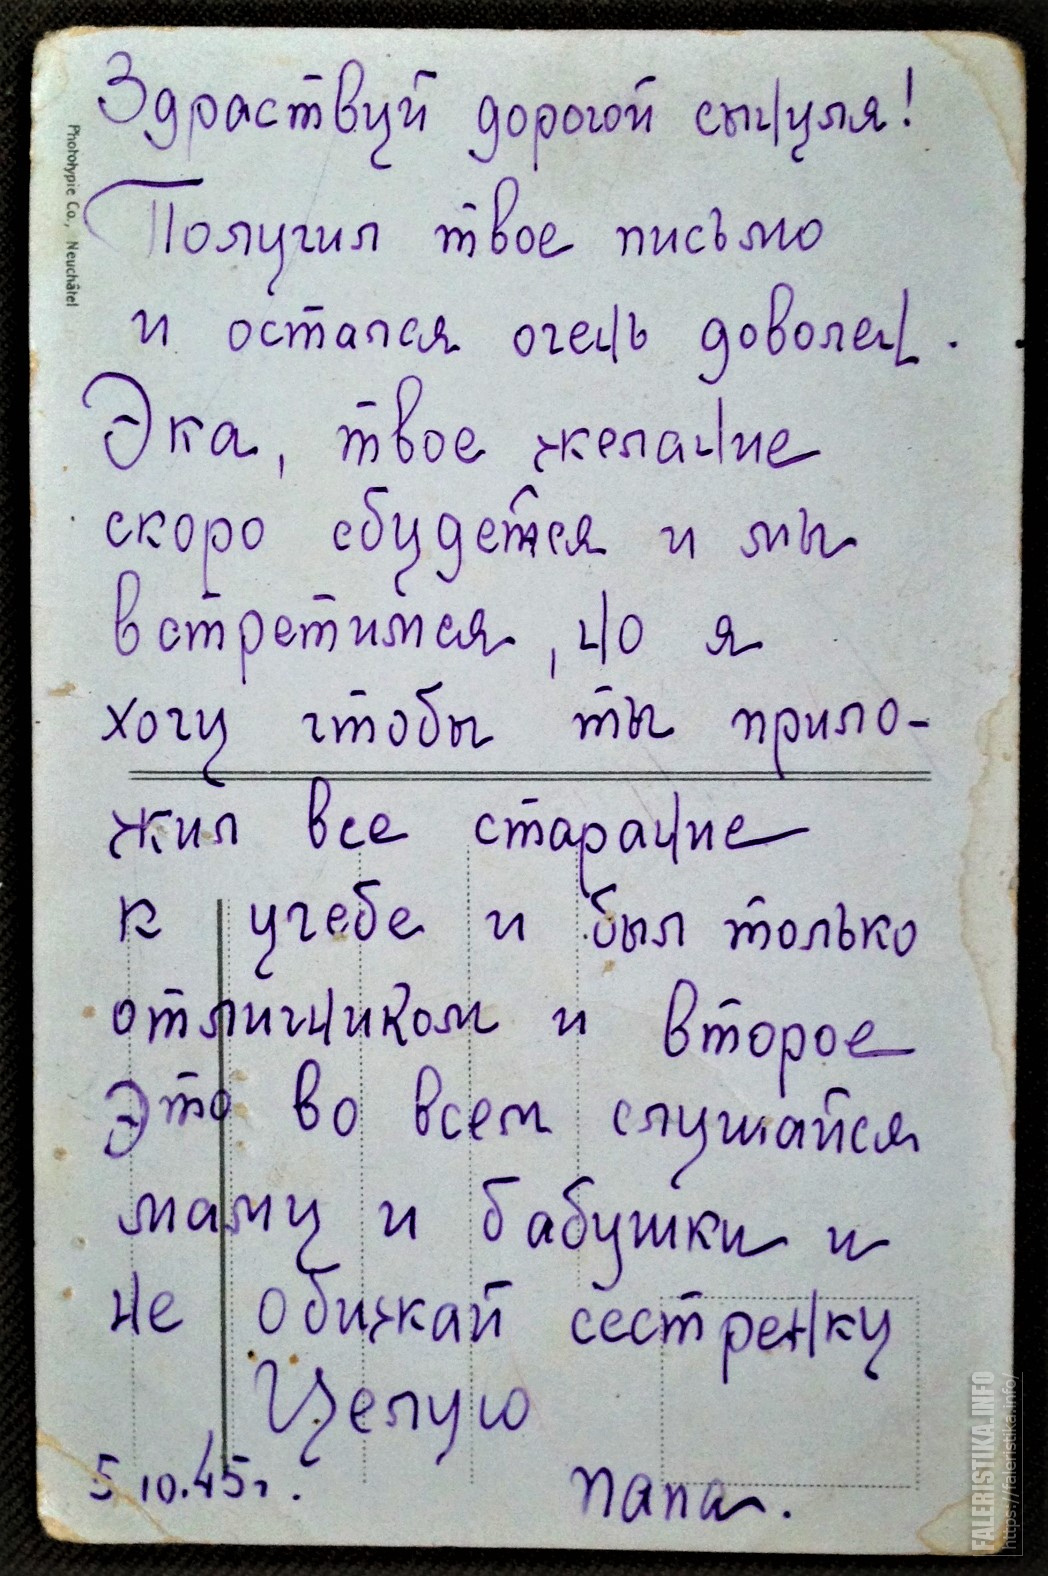 Здраствуй дорогой сынуля!
Получил твое письмо
и остался очень доволен.
Эка, твое желание
скоро сбудется и мы
встретимся, но я
хочу чтобы ты прило-
жил все старание
к учебе и был только
отличником и второе
Это во всем слушайся
маму и бабушки и
не обижай сестренку
Целую
5 10.45г.
папа.
Phototypie Co., Neuchâtel
FALERISTIKA.INFO
https://faleristika.info/